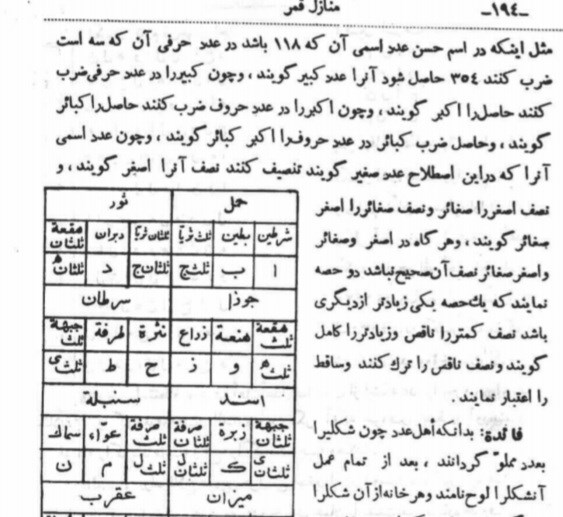 -۱۹٤-
منازل قمر
مثل اینکه در اسم حسن عدد اسمی آن که ۱۱۸ باشد در عدد حرفی آن که سه است
ضرب کنند ۳۵٤ حاصل شود آنرا عدد کبیر گویند ، وچون کبیررا در عدد حرفی ضرب
کنند حاصل را اکبر گویند ، وچون اکبررا در عدد حروف ضرب کنند حاصل را کبائر
گویند ، وحاصل ضرب کبائر در عدد حروفرا اکبر کبائر گویند ، وچون عدد اسمی
آنرا که دراین اصطلاح عدد صغیر گویند تنصیف کنند نصف آنرا اصغر گویند ، و
نصف اصغررا صغائر ونصف صغائررا اصغر
صغائر گویند ، وهرگاه در اصغر وصغائر
واصغر صغائر نصف آن صحیح نباشد دو حصه
نمایند که یك حصه یکی زیادتر ازدیگری
باشد نصف کمتررا ناقص وزیادتررا کامل
گویند ونصف ناقص را ترك کنند وساقط
را اعتبار نمایند .
فائدة: بدانکه اهل عدد چون شکلیرا
بعدد مملوّ گردانند ، بعد از تمام عمل
آنشکلرا لوح نامند وهر خانه از آن شکلرا
حمل ثور
شرطین بطین ثلث ثریا ثلثان ثریا دبران هقعة ثلثان
ا ب ثلث ج ثلثان ج د ثلثان ه
جوزا سرطان
هقعة ثلث هنعة ذراع نثرة طرفة جبهة ثلث
ثلث ه و ز ح ط ثلث ی
اسد سنبلة
جبهة ثلثان زبرة صرفة ثلثان صرفة ثلث عوّاء سماك
ثلثان ی ك ثلثان ل ثلث ل م ن
میزان عقرب